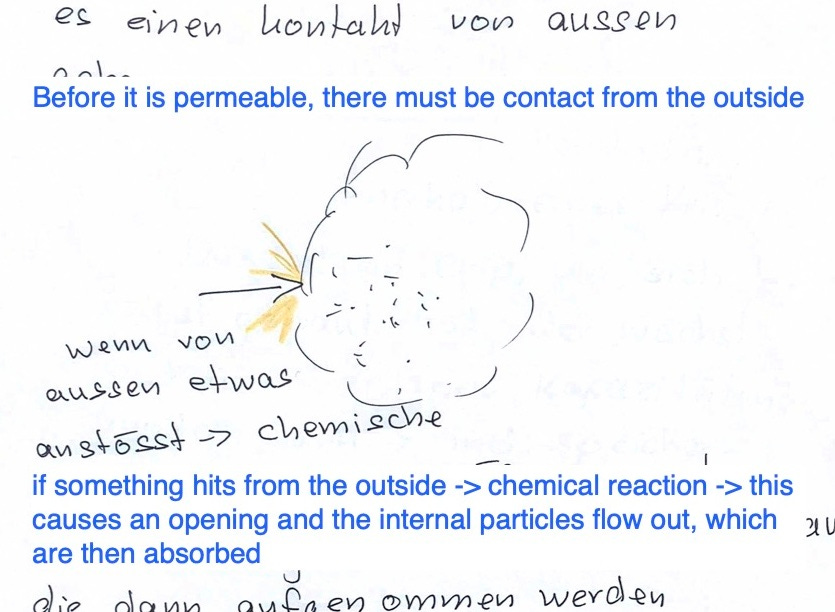 es einen kontakt von aussen
Before it is permeable, there must be contact from the outside
wenn von
aussen etwas
anstösst -> chemische
if something hits from the outside -> chemical reaction -> this
causes an opening and the internal particles flow out, which
are then absorbed
die dann aufgenommen werden